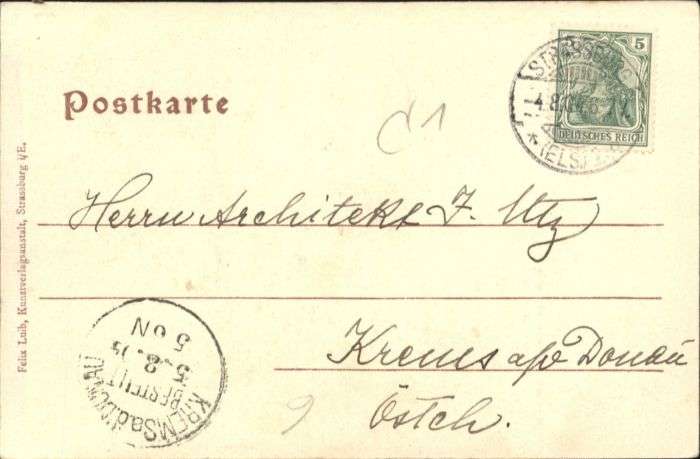 5
STRASSBURG
4.8.
* (ELS.)
DEUTSCHES REICH
Postkarte
C1
Herrn Architekt J. Utz
Krems a/o Donau
Östch.
9
KREMS a.d. DONAU
BESTELLT
5.8.
5 N
Felix Luib, Kunstverlagsanstalt, Strassburg i/E.